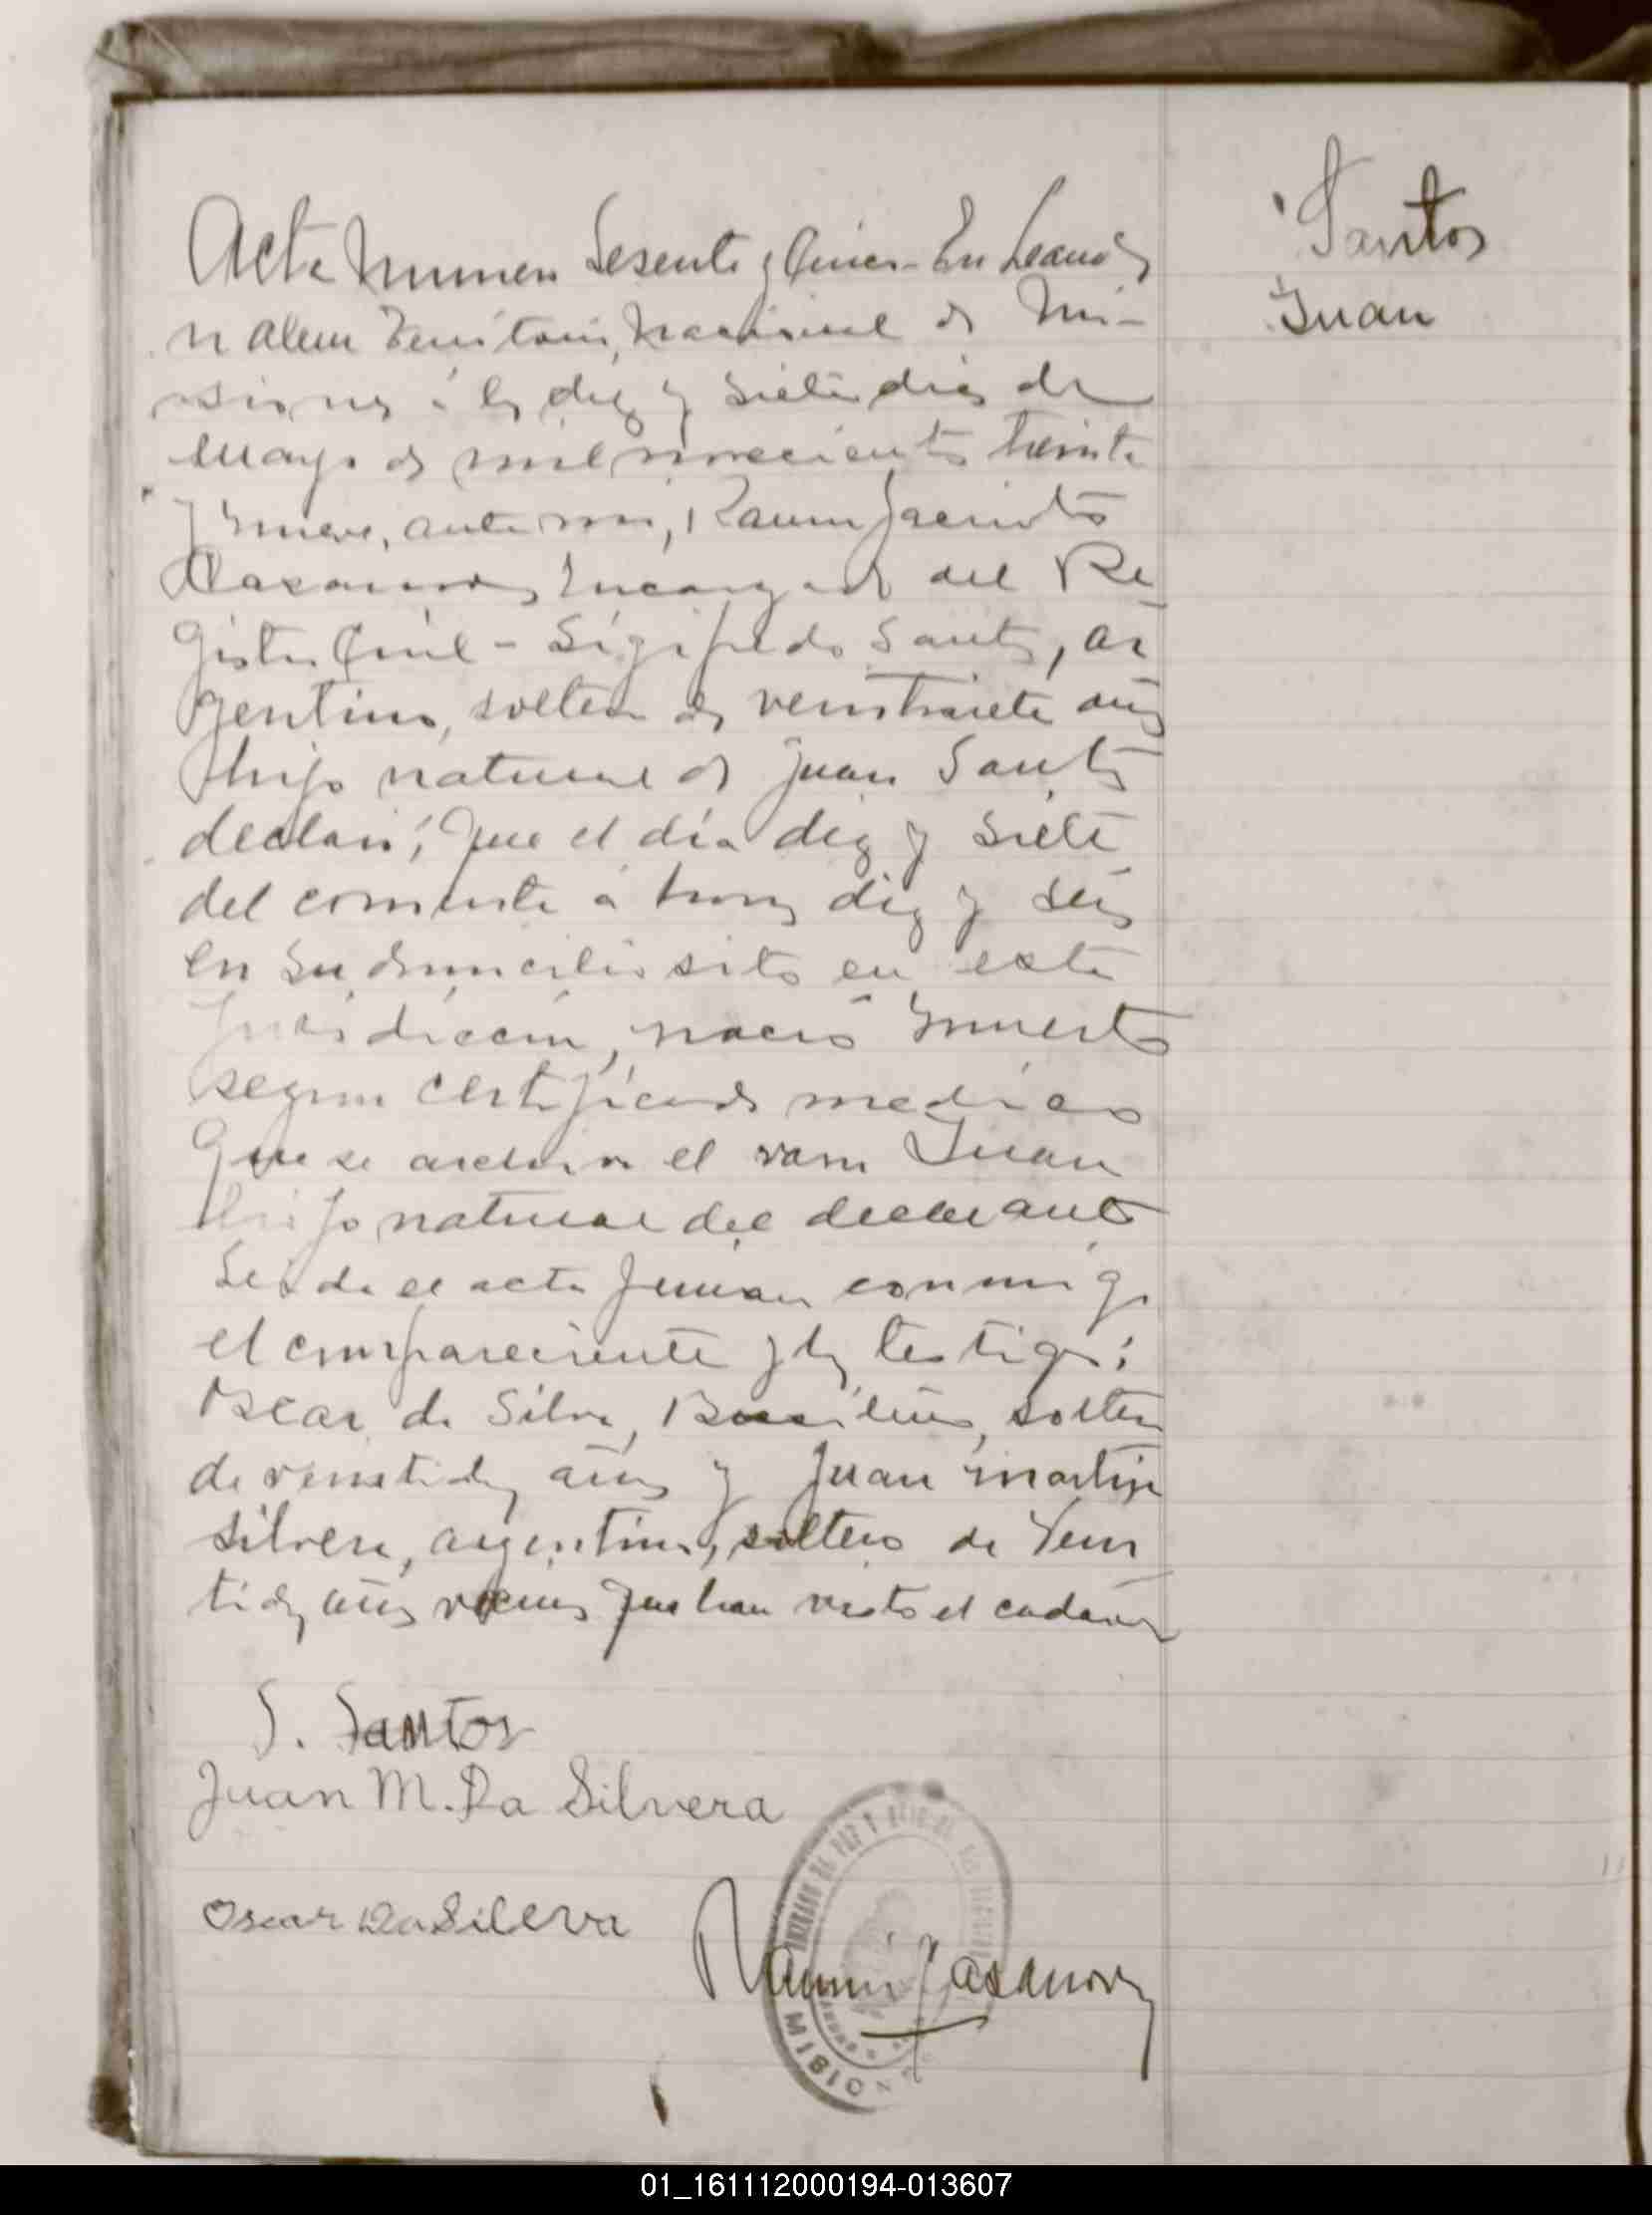 Acta Numero Sesenta y Cinco - En Leandro
N Alem Territorio Nacional de Mi-
siones á los diez y siete dias de
Mayo de mil novecientos treinta
y nueve, ante mi, Ramon Jacinto
Casanova, Encargado del Re
gistro Civil - Sigifredo Santos, ar
gentino, soltero de veintisiete años
hijo natural de Juan Santos
declaró; Que el día diez y siete
del corriente á horas diez y seis
en su domicilio sito en esta
jurisdiccion, nació muerto
segun certificado medico
Que se archiva el varon Juan
hijo natural del declarante
Leida el acta firman conmigo
el compareciente y los testigos:
Oscar da Silva, Brasilero, soltero
de veintidos años y Juan Martin
Silvera, argentino, soltero de Vein
tidos años vecinos que han visto el cadaver
S. Santos
Juan M. Da Silvera
Oscar Da Sileva
Ramon J Casanova
MISIONES
Santos
Juan
01_161112000194-013607